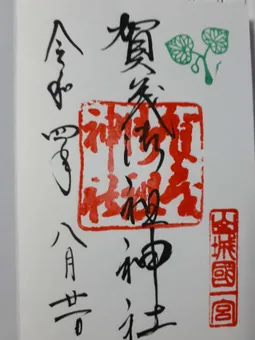 賀茂御祖神社
賀茂御祖神社
山城國一宮
令和四年 八月